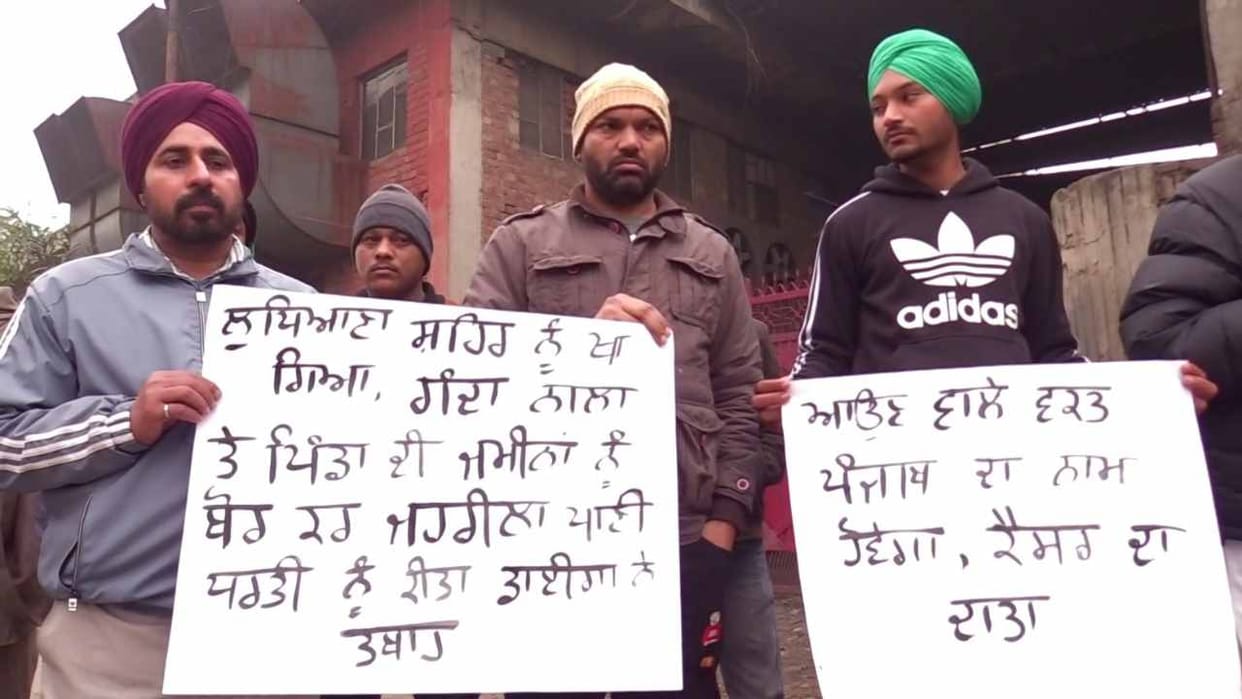 ਲੁਧਿਆਣਾ ਸ਼ਹਿਰ ਨੂੰ ਖਾ
ਗਿਆ, ਗੰਦਾ ਨਾਲਾ
ਤੇ ਪਿੰਡਾਂ ਦੀ ਜਮੀਨਾਂ ਨੂੰ
ਬੋਰ ਕਰ ਜਹਰੀਲਾ ਪਾਣੀ
ਧਰਤੀ ਨੂੰ ਕੀਤਾ ਡਾਈਗਾ ਨੇ
ਤਬਾਹ
adidas
ਆਉਣ ਵਾਲੇ ਵਕਤ
ਪੰਜਾਬ ਦਾ ਨਾਮ
ਹੋਵੇਗਾ, ਕੈਂਸਰ ਦਾ
ਦਾਤਾ